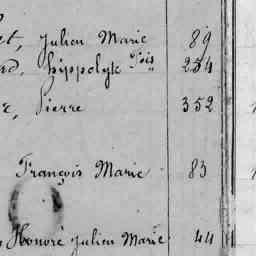 et, Julien Marie 89
hippolyte Fois 254
Pierre 352
François Marie 83
Honoré Julien Marie 44